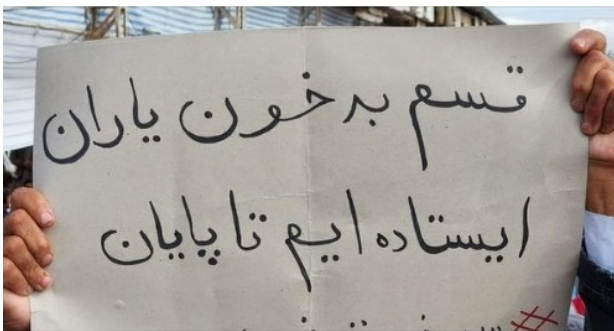 قسم به خون یاران
ایستاده ایم تا پایان
#